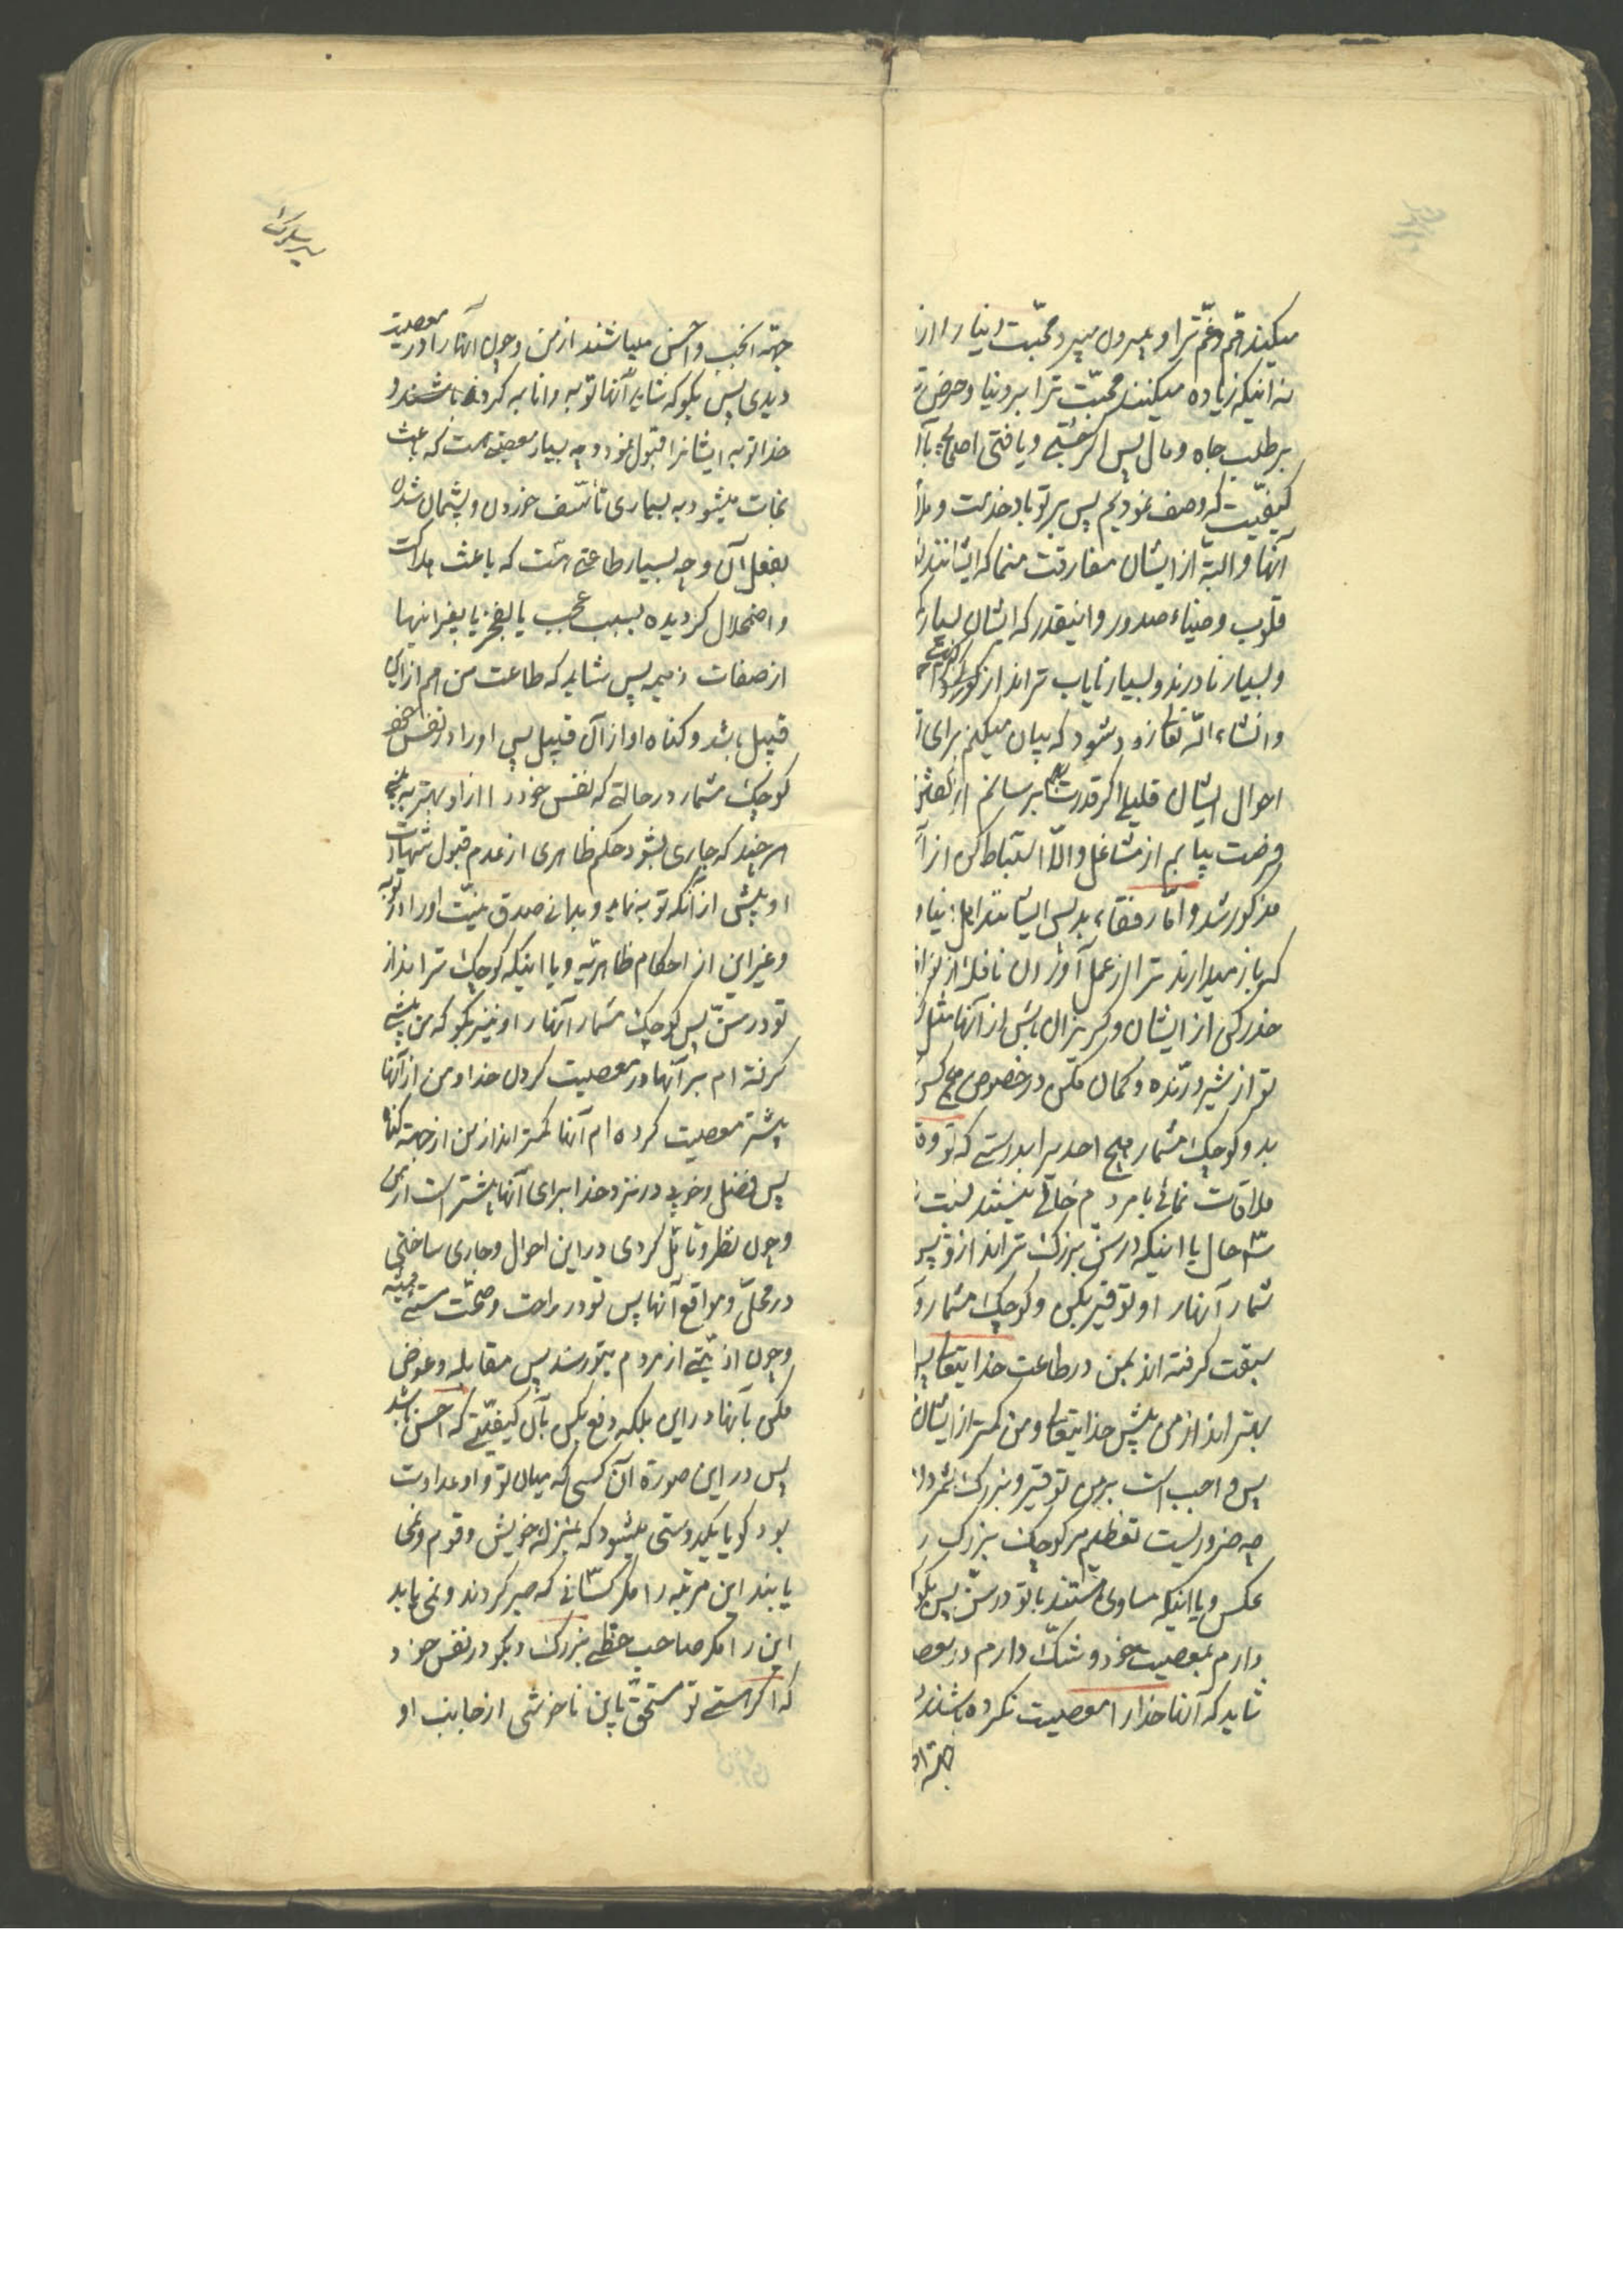 میکند هم و غم ترا و بیرون میبرد محبت دنیا را از
نه آنیکه زیاده میکنند محبت ترا بر دنیا و حرص
بر طلب جاه و مال پس اگر جستی و یافتی
کیفیت که وصف نمودیم پس بر تو باد خدمت و
آنها و البته از ایشان مفارقت منما که ایشانند
قلوب و ضیاء صدور و اینقدر که ایشان بسیار
و بسیار نادرند و بسیار نایاب تراند از
و انشاء الله تعالی زود شود که بیان میکنم برای
احوال ایشان قلیلی اگر قدرت بهم برسانم
فرصت بیابم از مشاغل و الا استنباط کن از
مذکور شد و اما رفقاء بد پس ایشانند اهل دنیا و
که باز میدارند ترا از عمل آوردن نافله
حذر کن از ایشان و گریزان باش از آنها مثل
تو از شیر درنده و گمان مکن در خصوص هیچ کس
بد و کوچک مشمار هیچ احدی را بدرستی که تو
ملاقات نمائی با مردم خالی نیستند
سه حال یا اینکه در سن بزرگ تراند از تو پس
شمار آنها را و توقیر بکن و کوچک مشمار و
سبقت گرفته اند بمن در طاعت خدایتعالی
بهتر اند از من پیش خدایتعالی و من کمتر از ایشان
پس واجب است بر من توقیر و بزرگ شمردن
چه ضروریست تعظیم مر کوچک بزرگ را
عکس و یا اینکه مساوی هستند با تو در سن پس بگو
دارم بمعصیت خود و شک دارم در
شاید که آنها خدا را معصیت نکرده باشند
جهة
جهة انجب و احسن میباشند از من و چون آنها را در معصیت
دیدی پس بگو که شاید آنها توبه و انابه کرده باشند و
خدا توبه ایشانرا قبول نمود و چه بسیار معصیتی هست که باعث
نجات میشود به بسیاری تأسف خوردن و پشیمان شدن
بفعل آن و چه بسیار طاعتی هست که باعث هلاکت
و اضمحلال گردیده بسبب عجب یا بفخر یا بغیر اینها
از صفات ذمیمه پس شاید که طاعت من هم از این
قبیل باشد و گناه او از آن قبیل پس او را در نفس خود
کوچک مشمار در حالة که نفس خود را از او بهتر
هر چند که جاری بشود حکم ظاهری از عدم قبول شهادت
او پیش از آنکه توبه نماید و بدانی صدق نیت او را در توبه
و غیر این از احکام ظاهریه و یا اینکه کوچک تر اند از
تو در سن پس کوچک مشمار آنها را و نیز بگو که من پیشی
گرفته ام بر آنها در معصیت کردن خدا و من از آنها
بیشتر معصیت کرده ام آنها کمتر اند از من از جهة گناه
پس فضل و خوبی در نزد خدا برای آنها بیشتر است از من
و چون نظر و تأمل کردی در این احوال و جاری ساختی
در محل و مواقع آنها پس تو در راحت و صحت هستی همیشه
و چون اذیتی از مردم بتو رسد پس مقابله و عوض
مکن بآنها در این بلکه دفع بکن بآن کیفیتی که احسن باشد
پس در این صورة آن کسی که میان تو و او عداوت
بود گویا یکدوستی میشود که بمنزله خویش و قوم و نمی
یابند این مرتبه را مگر کسانی که صبر کردند و نمی یابد
این را مگر صاحب حظی بزرگ و بگو در نفس خود
که اگر هستی تو مستحق باین ناخوشی از جانب او